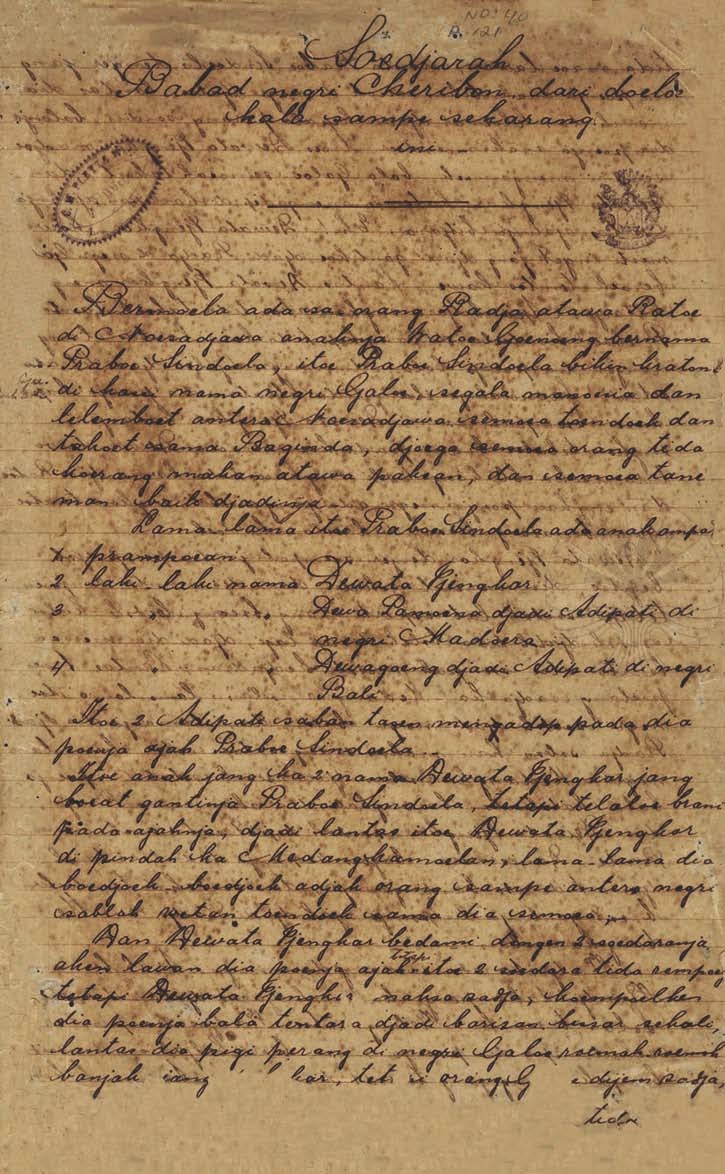 ND: 40
B. 121
Soedjarah
Babad negri Cheribon dari doeloe
kala sampe sekarang
ini
Bermoela ada sa orang Radja atawa Ratoe
di Noesadjawa anaknja Watoe Goenoeng bernama
Praboe Sindoela, itoe Praboe Sindoela bikin kraton
di kasi nama negri Galoe, segala manoesia dan
lelemboet antero Noesadjawa semoea toendoek dan
takoet sama Baginda, djoega semoea orang tida
koerang makan atawa pakean, dan semoea tane
man baik djadinja
Lama lama itoe Praboe Sindoela ada anak ampat
1 prampoean
2 laki-laki nama Dewata Tjengkar
3 " " Dewa Pamoena djadi Adipati di
negri Madoera
4 " " Dewagoeng djadi Adipati di negri
Bali
Itoe 2 Adipati saban taon mengadep pada dia
poenja ajah Praboe Sindoela
Itoe anak jang ka 2 nama Dewata Tjengkar jang
boeat gantinja Praboe Sindoela, tetapi telaloe brani
pada ajahnja, djadi lantas itoe Dewata Tjengkar
di pindah ka Medangkamoelan, lama-lama dia
boedjoek-boedjoek adjak orang sampe antero negri
sablah wetan toendoek sama dia semoea,
Dan Dewata Tjengkar bedami dengen 2 soedaranja
aken lawan dia poenja ajah tetapi itoe 2 soedara tida
tetapi Dewata Tjengkar maksa sadja, koempoelken
dia poenja bala tentara djadi barisan besar sekali,
lantas dia pigi perang di negri Galoe roemah roemah
banjak jang orang dijem sadja,
tida